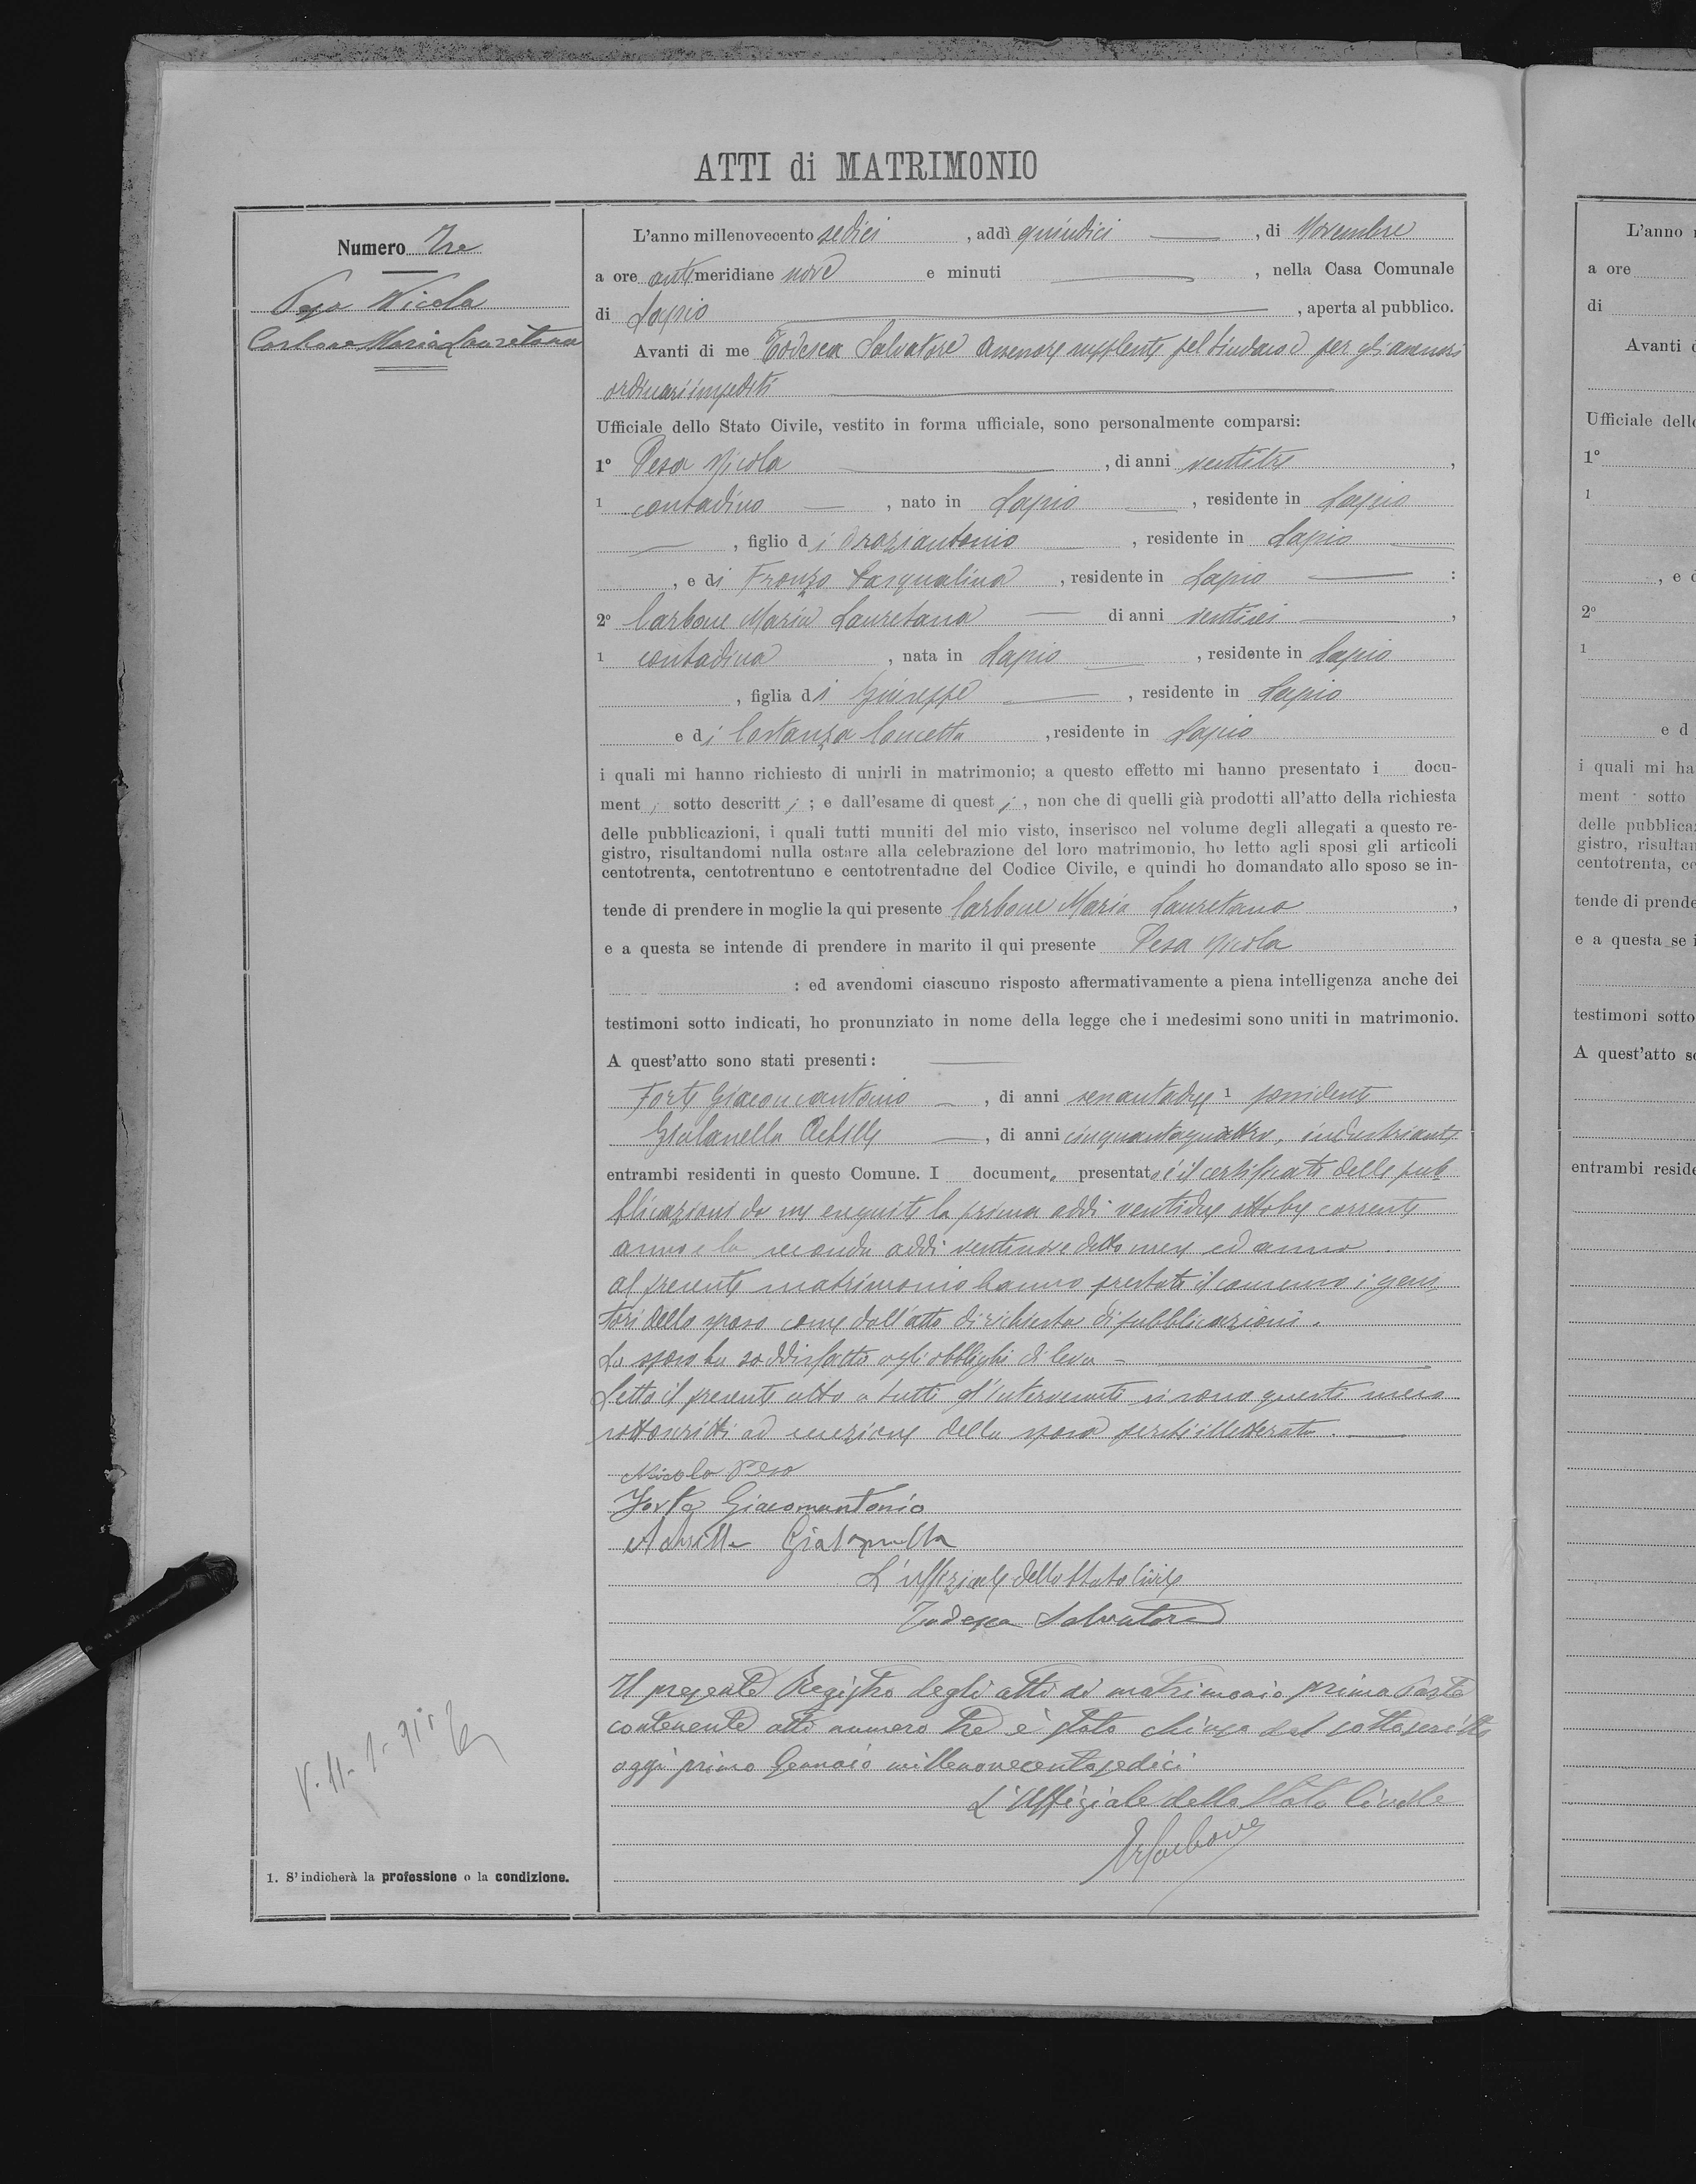 ATTI di MATRIMONIO
Numero Tre
Pesa Nicola
Carbone Maria Lauretana
L'anno millenovecento sedici, addì quindici, di Novembre
a ore antimeridiane nove e minuti, nella Casa Comunale
di Lapio, aperta al pubblico.
Avanti di me Todesca Salvatore assessore supplente pel Sindaco e per gli assessori
ordinari impediti
Ufficiale dello Stato Civile, vestito in forma ufficiale, sono personalmente comparsi:
1° Pesa Nicola, di anni ventitre,
1 contadino, nato in Lapio, residente in Lapio
, figlio di Oraziantonio, residente in Lapio
, e di Fronzo Pasqualina, residente in Lapio:
2° Carbone Maria Lauretana di anni ventisei,
1 contadina, nata in Lapio, residente in Lapio
, figlia di Giuseppe, residente in Lapio
e di Costanza Concetta, residente in Lapio
i quali mi hanno richiesto di unirli in matrimonio; a questo effetto mi hanno presentato i docu-
menti sotto descritti; e dall'esame di questi, non che di quelli già prodotti all'atto della richiesta
delle pubblicazioni, i quali tutti muniti del mio visto, inserisco nel volume degli allegati a questo re-
gistro, risultandomi nulla ostare alla celebrazione del loro matrimonio, ho letto agli sposi gli articoli
centotrenta, centotrentuno e centotrentadue del Codice Civile, e quindi ho domandato allo sposo se in-
tende di prendere in moglie la qui presente Carbone Maria Lauretana,
e a questa se intende di prendere in marito il qui presente Pesa Nicola
: ed avendomi ciascuno risposto affermativamente a piena intelligenza anche dei
testimoni sotto indicati, ho pronunziato in nome della legge che i medesimi sono uniti in matrimonio.
A quest'atto sono stati presenti:
Forte Giacomantonio, di anni sessantadue 1 possidente
Gialanella Achille, di anni cinquantaquattro, industriante
entrambi residenti in questo Comune. I documento presentato è il certificato delle pub
blicazioni da me eseguite la prima addì ventidue ottobre corrente
anno e la seconda addì ventinove detto mese ed anno.
al presente matrimonio hanno prestato il consenso i geni
tori dello sposo come dall'atto di richiesta di pubblicazioni.
Lo sposo ha soddisfatto agli obblighi di leva
Letto il presente atto a tutti gl'intervenuti si sono questi meco
sottoscritti ad eccezione della sposa perchè illetterata.
Nicola Pesa
Forte Giacomantonio
Achille Gialanella
L'uffiziale dello Stato Civile
Todesca Salvatore
Il presente Registro degli atti di matrimonio prima parte
contenente atti numero tre è stato chiuso dal sottoscritto
oggi primo Gennaio millenovecentosedici
L'Uffiziale dello Stato Civile
1. S'indicherà la professione o la condizione.
L'anno
a ore
di
Avanti
Ufficiale dello
1°
1
, e
2°
1
e d
i quali mi ha
ment sotto
delle pubblica
gistro, risultan
centotrenta, ce
tende di prende
e a questa se i
testimoni sotto
A quest'atto so
entrambi reside